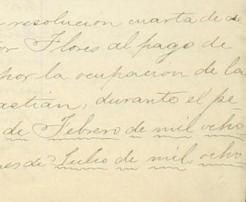 resolución cuarta de
or Flores al pago de
por la ocupacion de la
astián, durante el pe
de Febrero de mil ocho
es de Julio de mil ocho